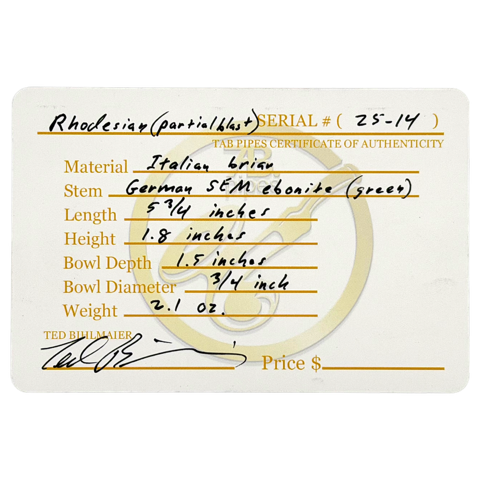 Rhodesian (partial blast) SERIAL # ( 25-14 )
TAB PIPES CERTIFICATE OF AUTHENTICITY
Material Italian briar
Stem German SEM ebonite (green)
Length 5 3/4 inches
Height 1.8 inches
Bowl Depth 1.5 inches
Bowl Diameter 3/4 inch
Weight 2.1 oz.
TED BIHLMAIER
Price $